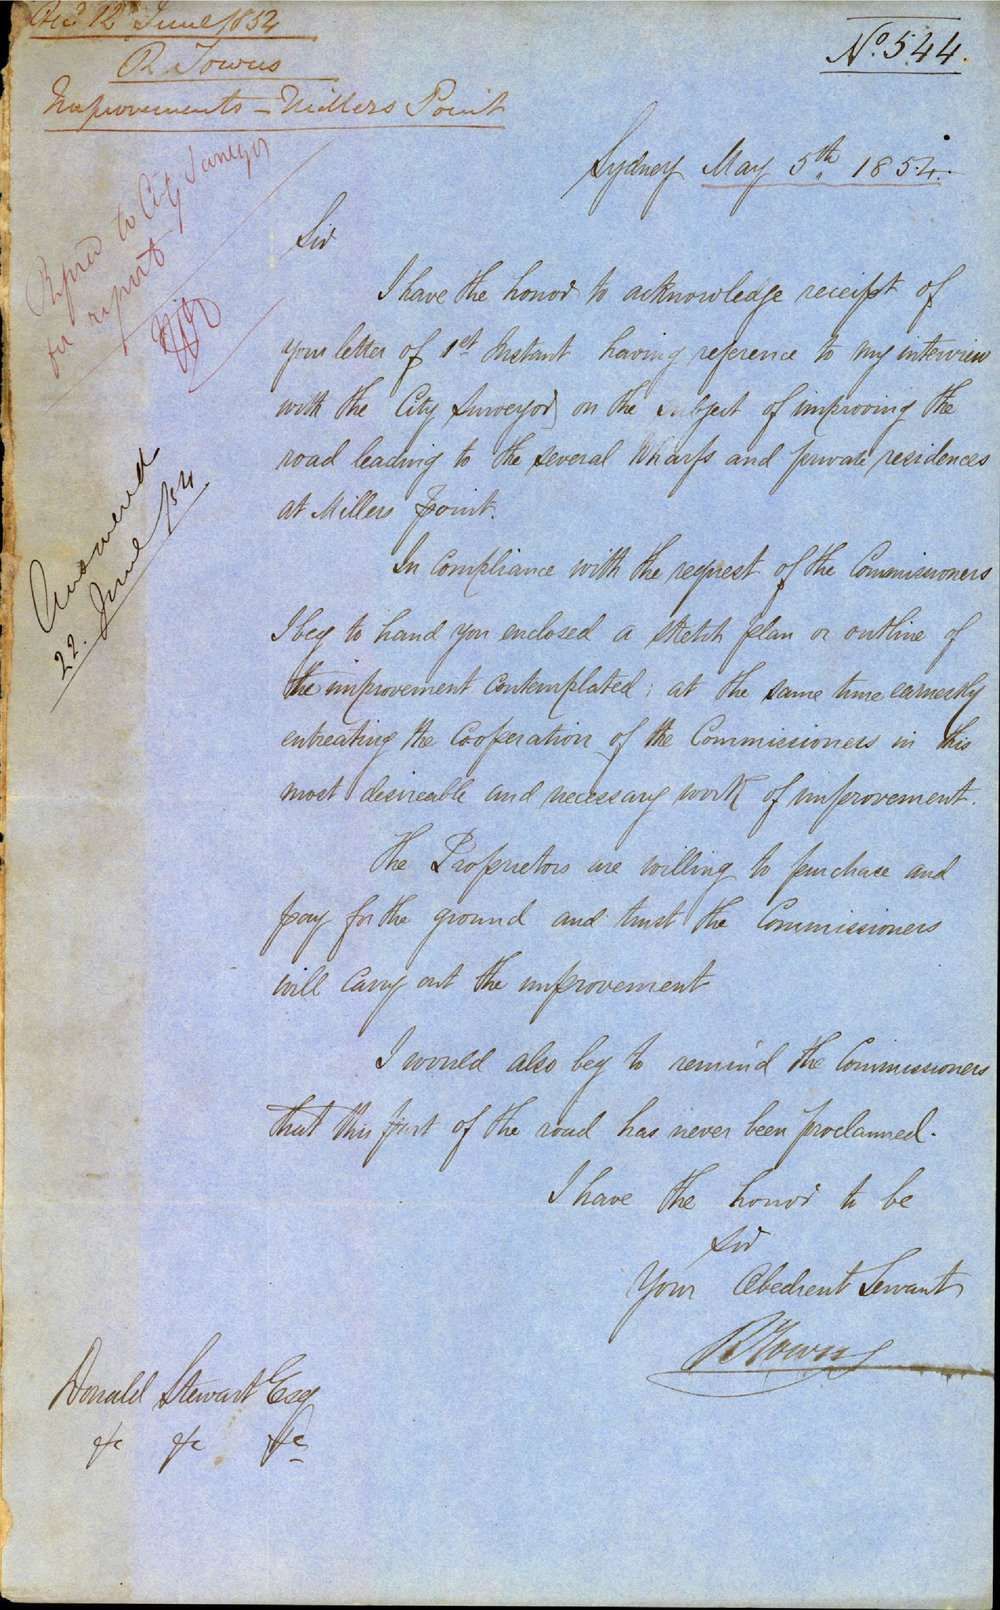 Recd 12 June 1854
R Towns
Improvements - Millers Point
No. 544.
Refered to City Surveyor
for report
Answered
22. June /54
Sydney May 5th. 1854.
Sir
I have the honor to acknowledge receipt of
your letter of 1st Instant having reference to my interview
with the City Surveyor on the subject of improving the
road leading to the several Wharfs and private residences
at Millers Point.
In compliance with the request of the Commissioners
I beg to hand you enclosed a sketch plan or outline of
the improvement contemplated; at the same time earnestly
entreating the Cooperation of the Commissioners in this
most desireable and necessary work of improvement.
The Proprietors are willing to purchase and
pay for the ground and trust the Commissioners
will carry out the improvement
I would also beg to remind the Commissioners
that this part of the road has never been proclaimed.
I have the honor to be
Sir
Your Obedient Servant
R Towns
Donald Stewart Esq
&c &c &c